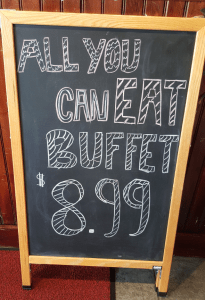 ALL YOU
CAN EAT
BUFFET
$ 8.99